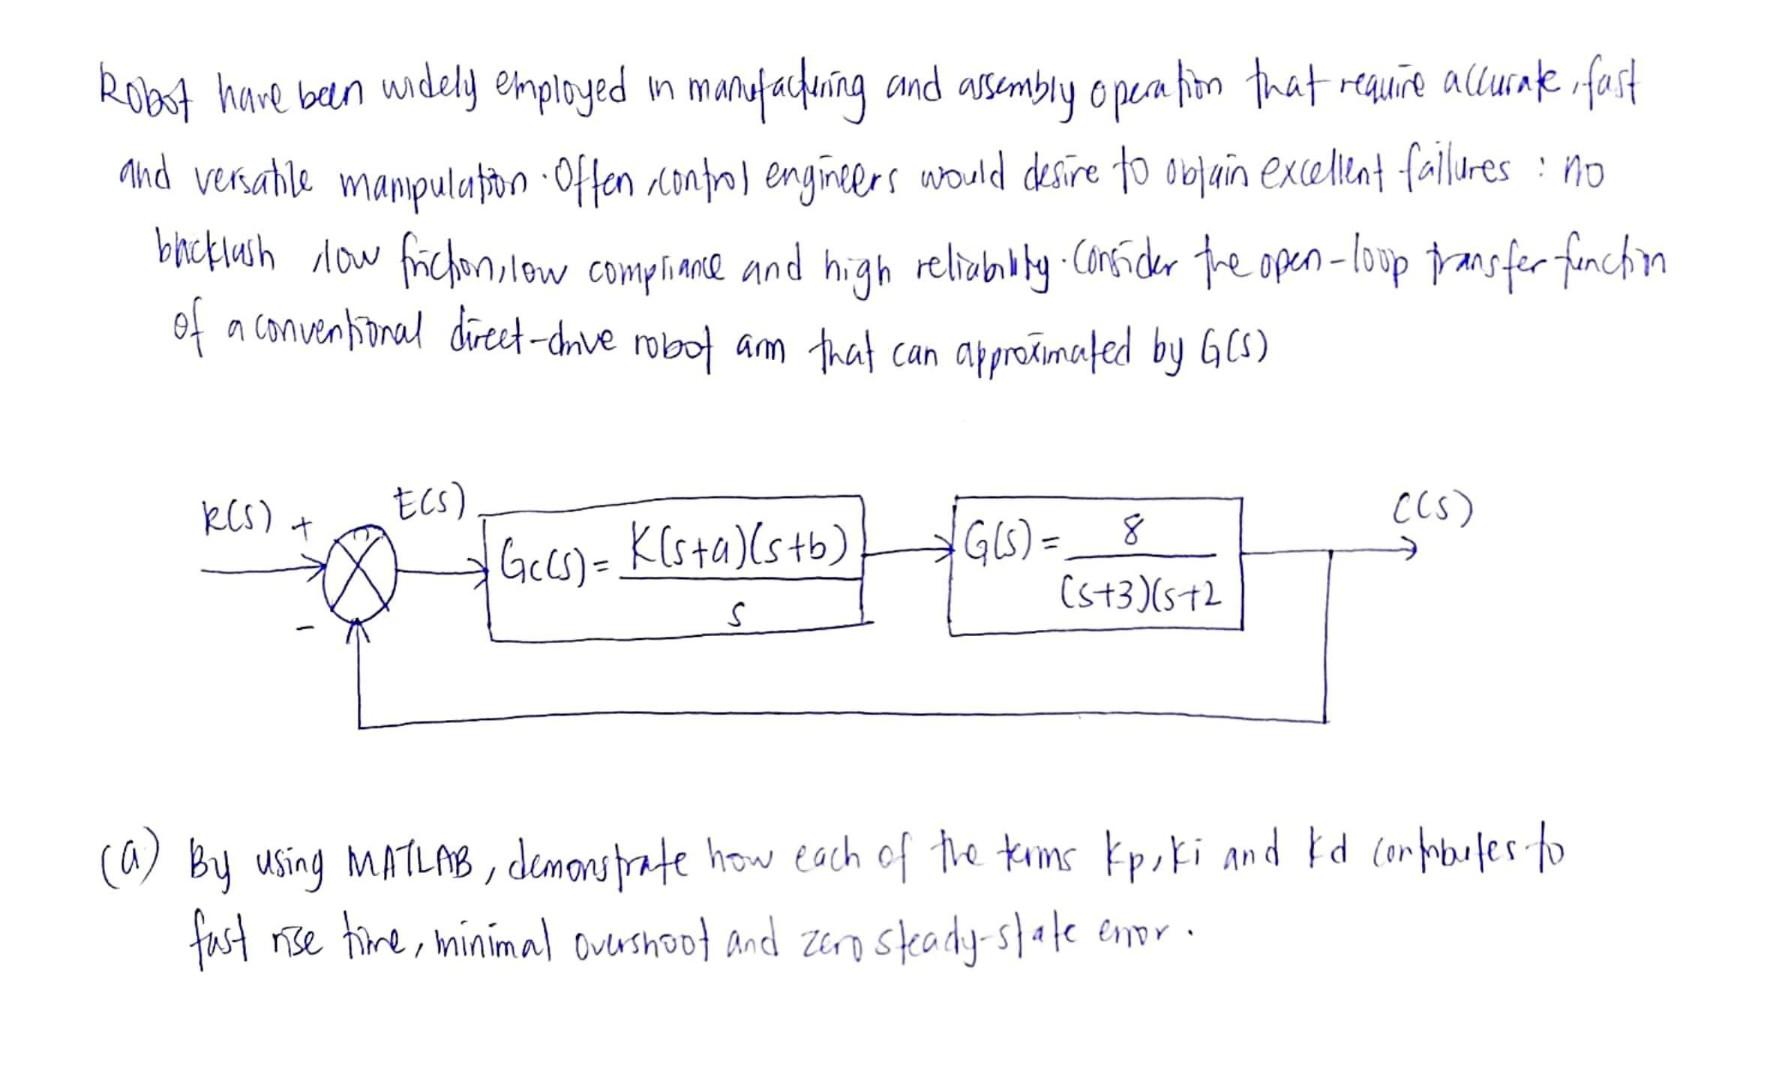 Robot have been widely employed in manufacturing and assembly operation that require accurate, fast
and versatile manipulation. Often, control engineers would desire to obtain excellent failures : no
backlash, low friction, low compliance and high reliability. Consider the open-loop transfer function
of a conventional direct-drive robot arm that can approximated by G(s)
R(s) + E(s) Gc(s) = K(s+a)(s+b) / s G(s) = 8 / (s+3)(s+2 C(s)
-
(a) By using MATLAB, demonstrate how each of the terms Kp, Ki and Kd contributes to
fast rise time, minimal overshoot and zero steady-state error.